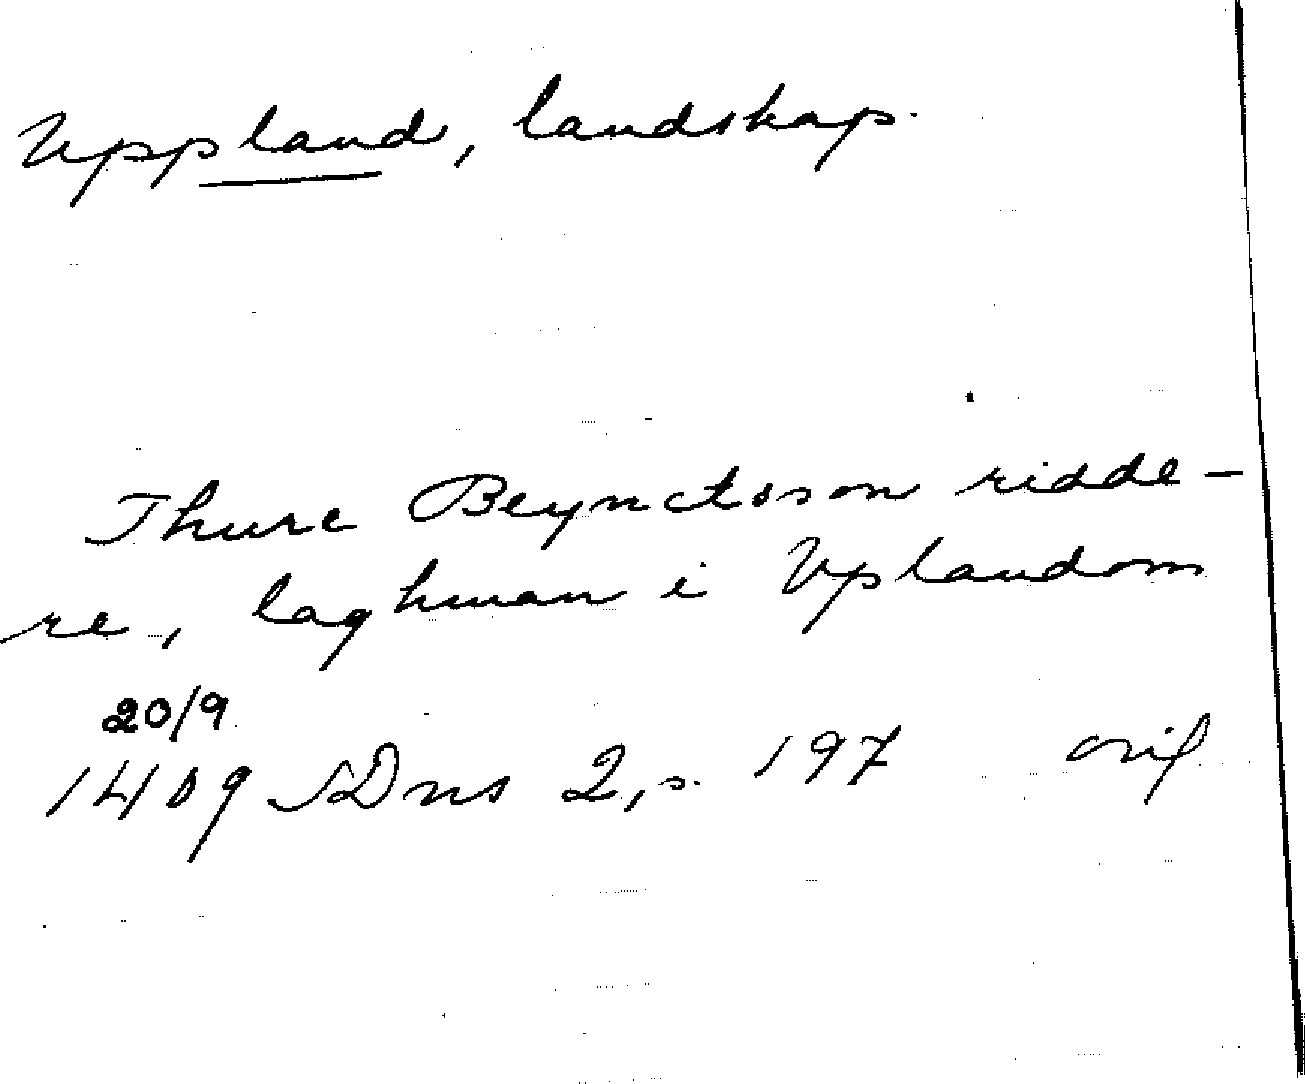 Uppland, landskap.
Thure Beynctsson ridde-
re, laghman i Uplandom
20/9
1409 SDns 2, s. 197 orif